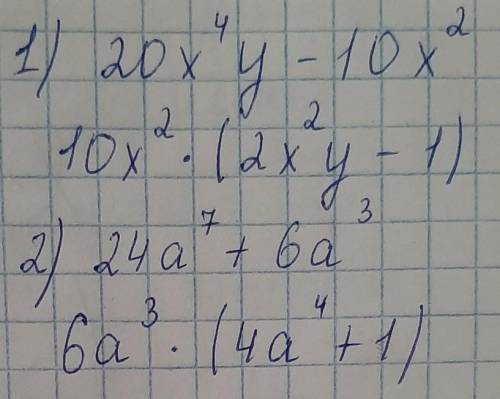 1) 20x⁴y - 10x²
10x² · (2x²y - 1)
2) 24a⁷ + 6a³
6a³ · (4a⁴ + 1)